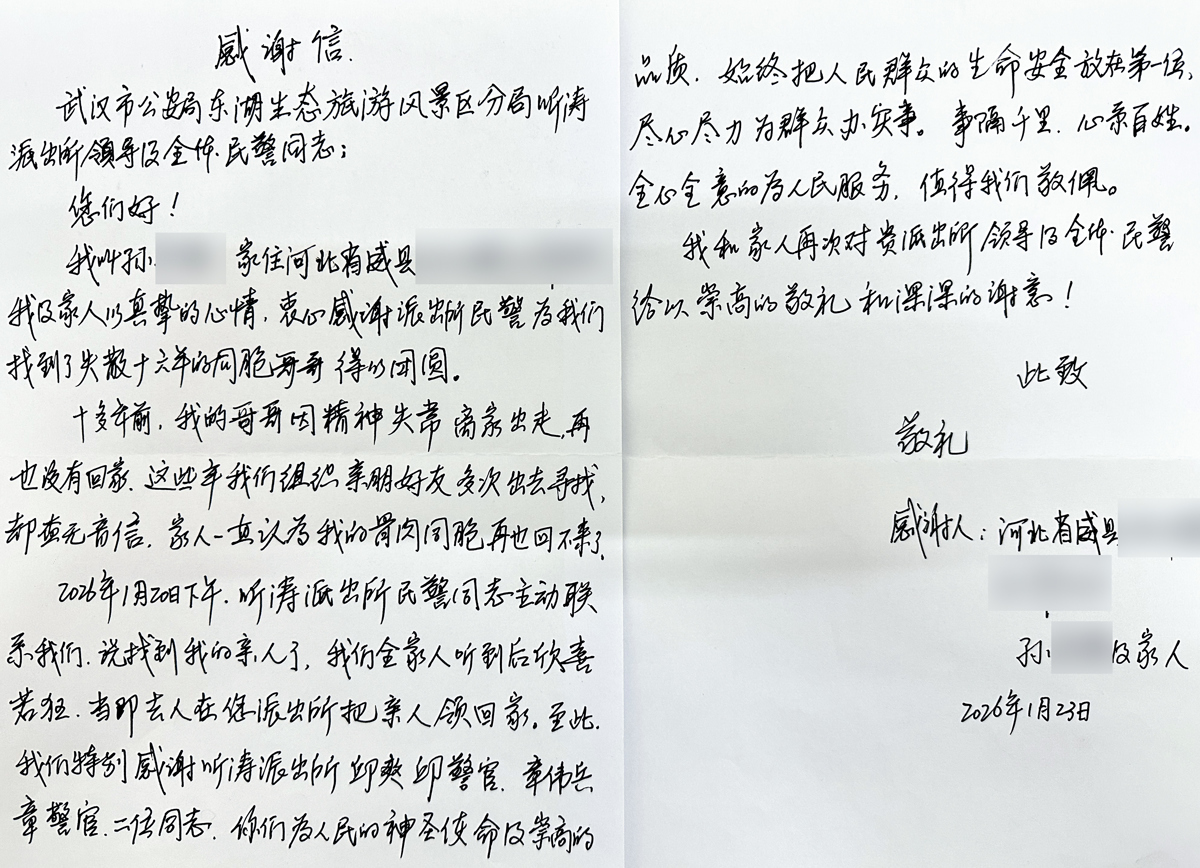 感谢信.
武汉市公安局东湖生态旅游风景区分局听涛
派出所领导及全体民警同志:
您们好!
我叫孙 家住河北省威县
我及家人以真挚的心情,衷心感谢派出所民警为我们
找到了失散十六年的同胞哥哥得以团圆。
十多年前,我的哥哥因精神失常离家出走,再
也没有回家.这些年我们组织亲朋好友多次出去寻找,
都杳无音信.家人一直认为我的骨肉同胞再也回不来了.
2026年1月20日下午.听涛派出所民警同志主动联
系我们.说找到我的亲人了,我们全家人听到后欣喜
若狂.当即去人在您派出所把亲人领回家。至此.
我们特别感谢听涛派出所邱爽邱警官.章伟兵
章警官.二位同志.你们为人民的神圣使命及崇高的
品质.始终把人民群众的生命安全放在第一位,
尽心尽力为群众办实事。事隔千里.心系百姓.
全心全意的为人民服务,值得我们敬佩。
我和家人再次对贵派出所领导及全体民警
给以崇高的敬礼和深深的谢意!
此致
敬礼
感谢人:河北省威县
孙 及家人
2026年1月23日